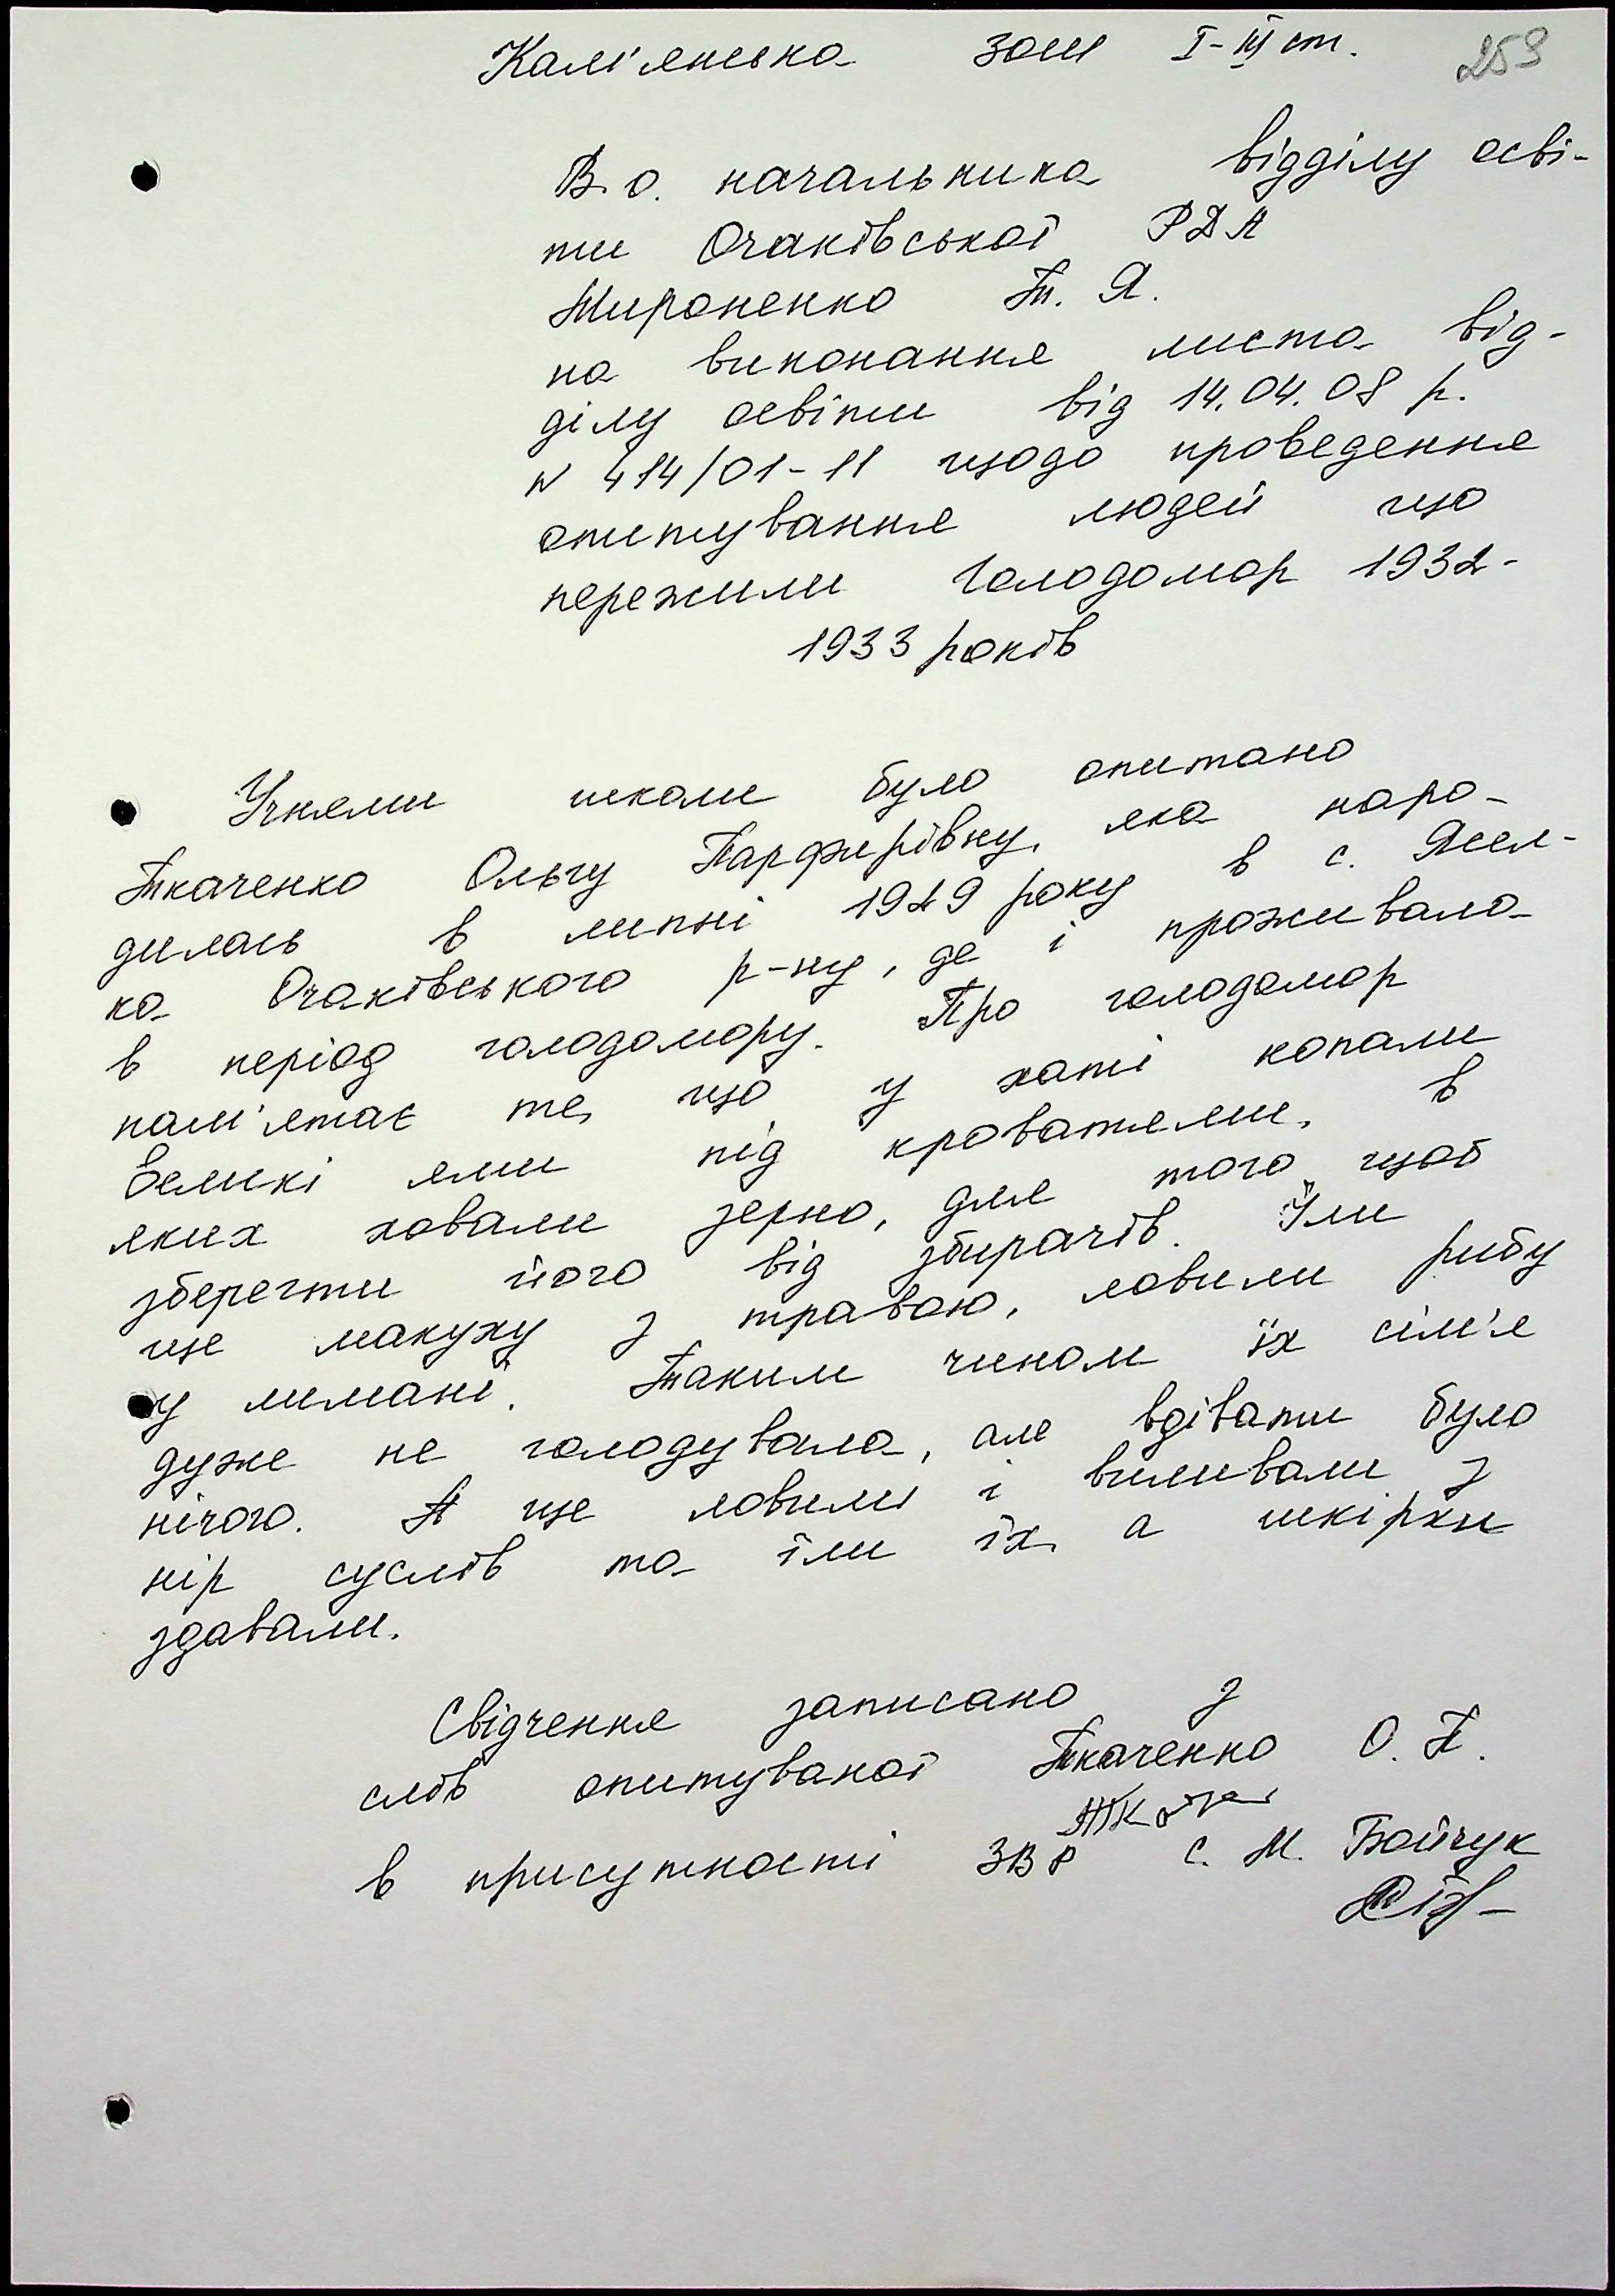 Кам'янська зош I-III ст. 259
В.о. начальника відділу осві-
ти Очаківської РДА
Мироненко Т. Я.
на виконання листа від-
ділу освіти від 14.04.08 р.
N 414/01-11 щодо проведення
опитування людей що
пережили Голодомор 1932-
1933 років
Учнями школи було опитано
Ткаченко Ольгу Парфирівну, яка наро-
дилась в липні 1929 року в с. Ясел-
ка Очаківського р-ну, де і проживала
в період голодомору. Про голодомор
пам'ятає те, що у хаті копали
Великі ями під кроватями, в
яких ховали зерно, для того щоб
зберегти його від збирачів. Їли
ще макуху з травою, ловили рибу
у лимані. Таким чином їх сім'я
дуже не голодувала, але вдівати було
нічого. А ще ловили і виливали з
нір суслів та їли їх, а шкірки
здавали.
Свідчення записано з
слів опитуваної Ткаченко О. П.
в присутності ЗВР С. М. Бойчук